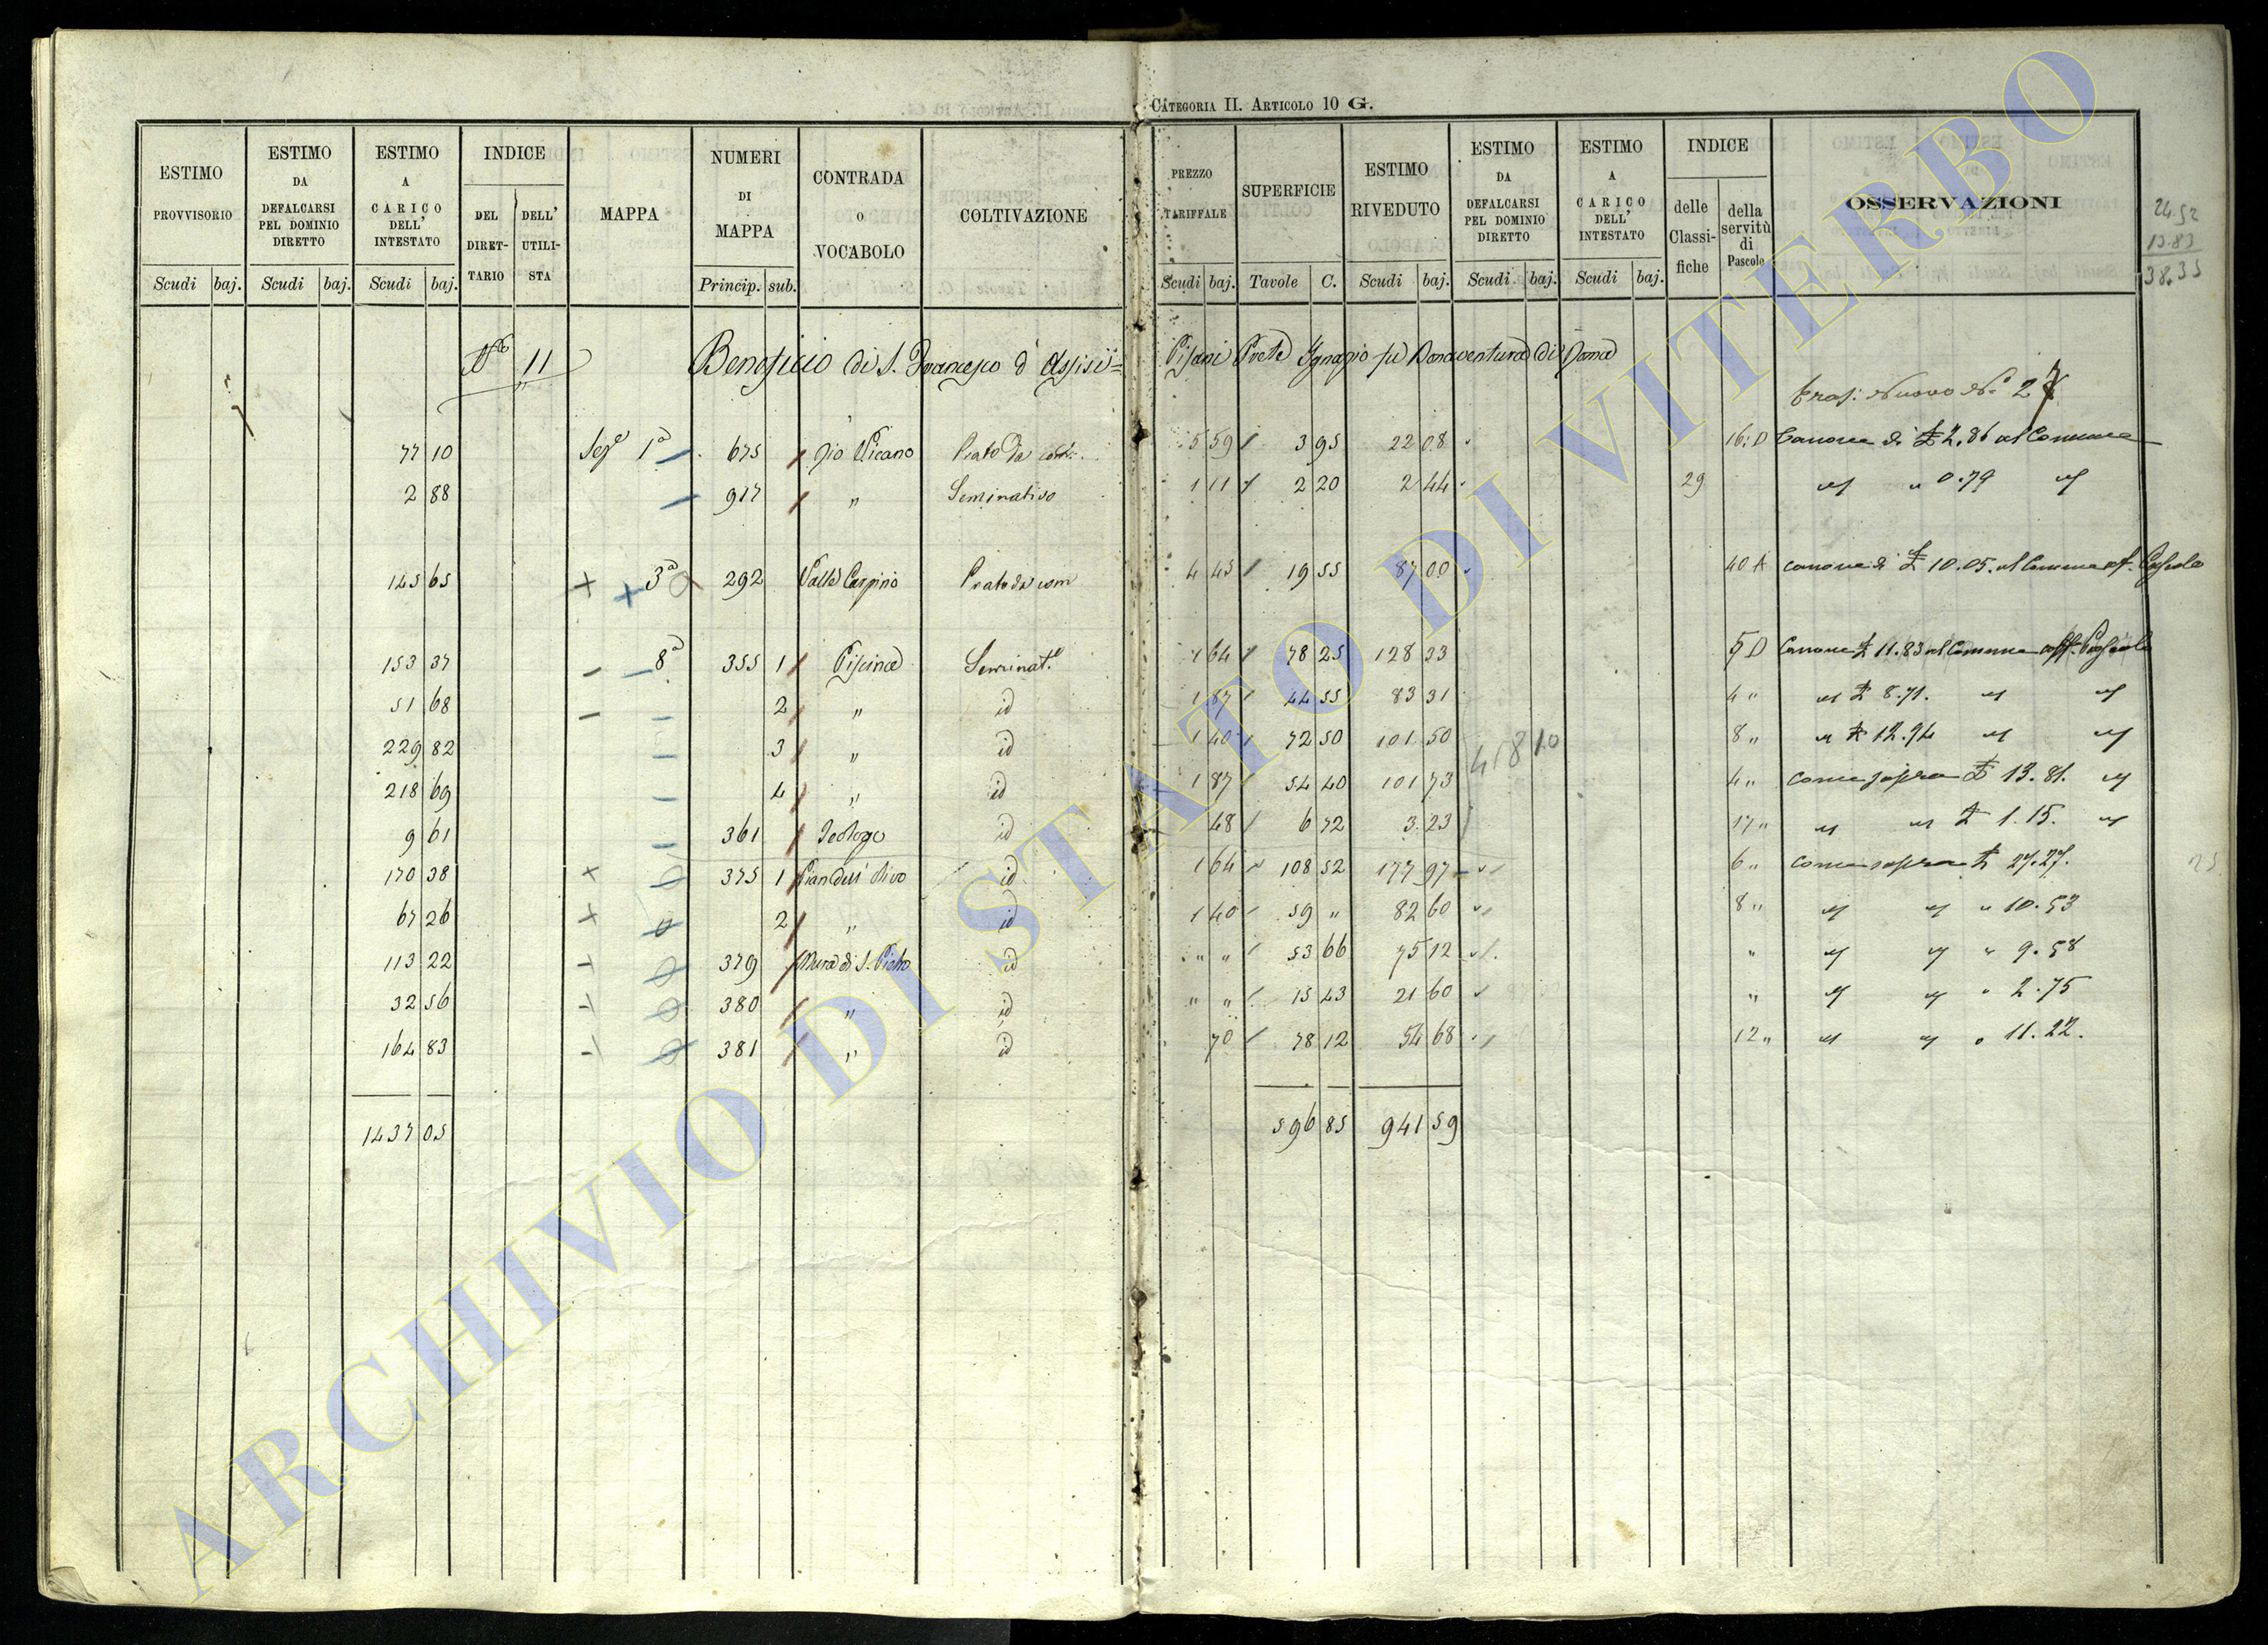 CATEGORIA II. ARTICOLO 10 G.
ESTIMO PROVVISORIO Scudi baj. ESTIMO DA DEFALCARSI PEL DOMINIO DIRETTO Scudi baj. ESTIMO A CARICO DELL' INTESTATO Scudi baj. INDICE DEL DIRET-TARIO DELL' UTILI-STA MAPPA NUMERI DI MAPPA Princip. sub. CONTRADA O VOCABOLO COLTIVAZIONE PREZZO TARIFFALE Scudi baj. SUPERFICIE Tavole C. ESTIMO RIVEDUTO Scudi baj. ESTIMO DA DEFALCARSI PEL DOMINIO DIRETTO Scudi baj. ESTIMO A CARICO DELL' INTESTATO Scudi baj. INDICE delle Classi-fiche della servitù di Pascolo OSSERVAZIONI
24.52
13.83
38.35
11 Beneficio di S. Francesco d'Assisi = Pisani Prete Ignazio fu Bonaventura di Roma
Tras: Nuovo N° 27
77 10 Sez^e 1ª 675 Rio Vicano Prato da com: 5 59 3 95 22 08 16:D Canone di £ 2.86 al Comune
2 88 917 " Seminativo 1 11 2 20 2 44 29 " 0.79
145 65 + + 3ª 292 Valle Carpino Prato da com 4 45 19 55 87 00 40 A canone di £ 10.05. al Comune aff. Pascolo
153 37 – – 8ª 355 1 Piscina Seminat.^o 1 64 78 25 128 33 5 D Canone £ 11.83 al Comune aff. Pascolo
51 68 – – 2 " id 1 87 44 55 83 31 4 " £ 8.71.
229 82 – 3 " id 1 40 72 50 101 50 8 " £ 12.94
45810
218 69 – 4 " id 1 87 54 40 101 73 4 " come sopra £ 13.81.
9 61 – 361 id 48 6 72 3.23 17 " £ 1.15.
170 38 + 375 1 Pian dell' Olivo id 1 64 108 52 177 97 6 " come sopra £ 27.27.
67 26 + 2 " id 1 40 59 " 82 60 8 " " 10.53
113 22 379 Mura di S. Pietro id " " 53 66 75 12 " " 9.58
32 56 380 " id " " 15 43 21 60 " " 2.75
164 83 381 " id 70 78 12 54 68 12 " 11.22.
1437 05 596 85 941 59
ARCHIVIO DI STATO DI VITERBO